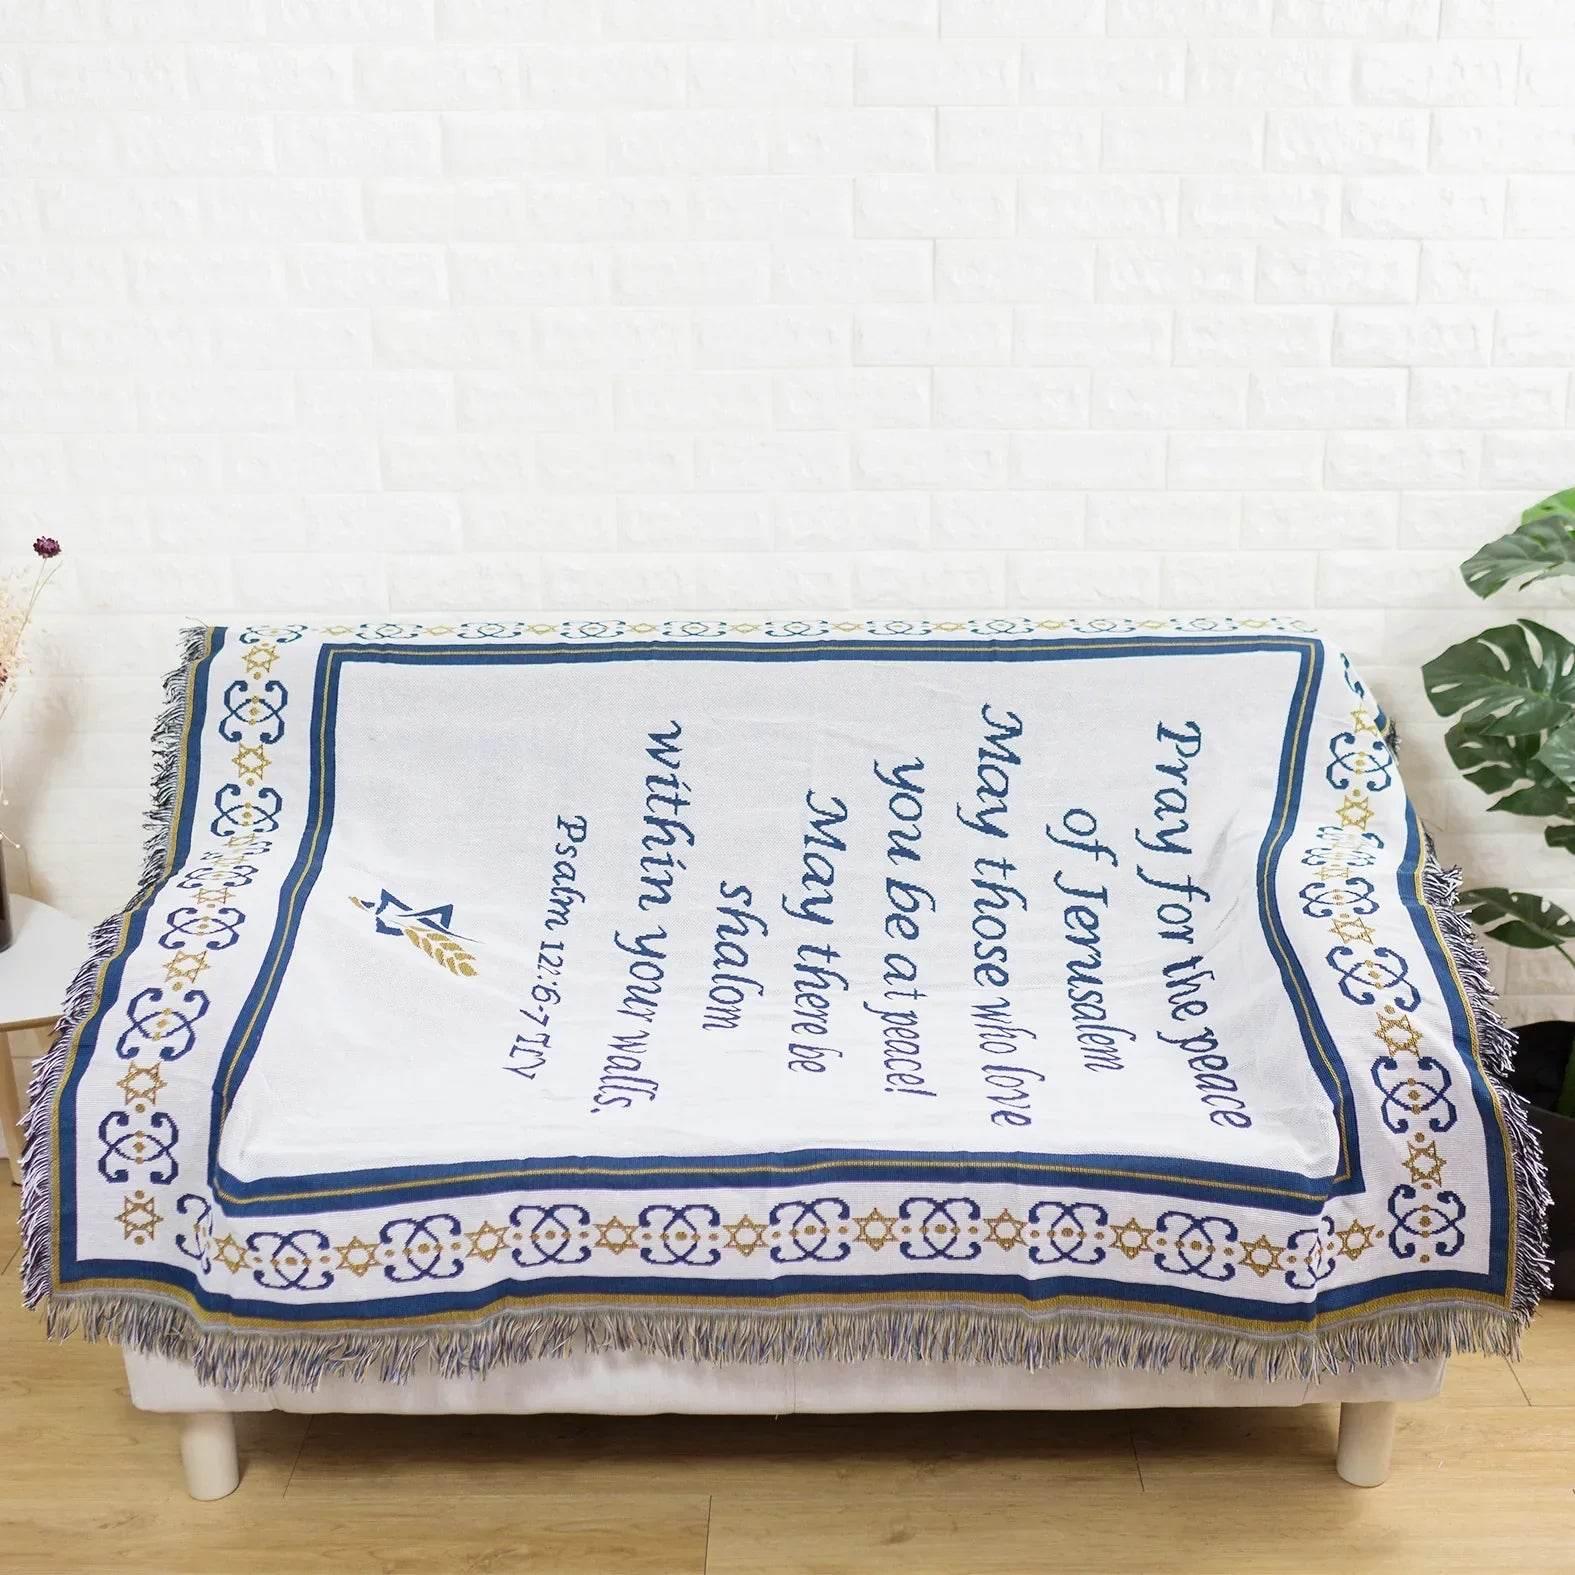 Pray for the peace
of Jerusalem
May those who love
you be at peace!
May there be
shalom
within your walls.
Psalm 122:6-7 TLV